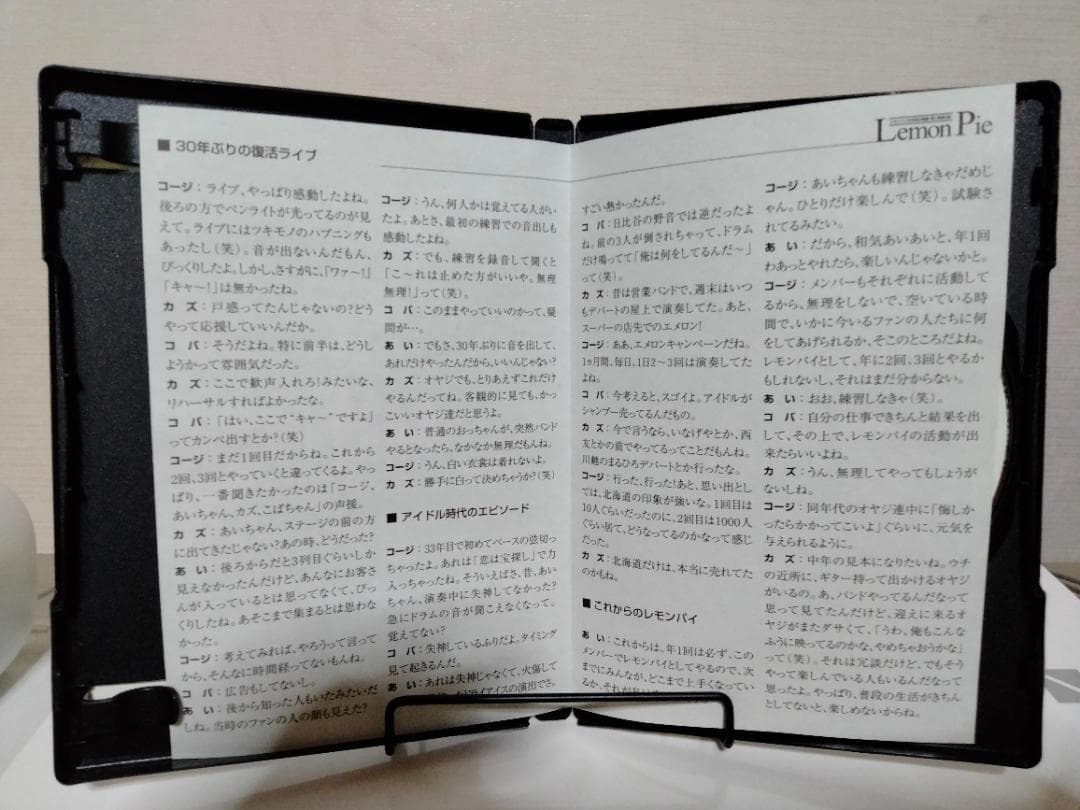 ■ 30年ぶりの復活ライブ
コージ：ライブ、やっぱり感動したよね。
後ろの方でペンライトが光ってるのが見
えて。ライブにはツキモノのハプニングも
あったし（笑）。音が出ないんだもん、
びっくりしたよ。しかし、さすがに、「ワァ〜！」
「キャ〜！」は無かったね。
カ ズ：戸惑ってたんじゃないの？どう
やって応援していいんだか。
コ バ：そうだよね。特に前半は、どうし
ようかって雰囲気だった。
カ ズ：ここで歓声入れろ！みたいな、
リハーサルすればよかったな。
コ バ：「はい、ここで“キャー”ですよ」
ってカンペ出すとか？（笑）
コージ：まだ1回目だからね。これから
2回、3回とやっていくと違ってくるよ。やっ
ぱり、一番聞きたかったのは「コージ、
あいちゃん、カズ、こばちゃん」の声援。
カ ズ：あいちゃん、ステージの前の方
に出てきたじゃない？あの時、どうだった？
あ い：後ろからだと3列目ぐらいしか
見えなかったんだけど、あんなにお客さ
んが入っているとは思ってなくて、びっ
くりしたね。あそこまで集まるとは思わな
かった。
コージ：考えてみれば、やろうって言って
から、そんなに時間経ってないもんね。
コ バ：広告もしてないし。
あ い：後から知った人もいたみたいだ
しね。当時のファンの人の顔も見えた？
コージ：うん、何人かは覚えてる人がい
たよ。あとさ、最初の練習での音出しも
感動したよね。
カ ズ：でも、練習を録音して聞くと
「こ〜れは止めた方がいいや。無理
無理！」って（笑）。
コ バ：このままやっていいのかって、疑
問が…。
あ い：でもさ、30年ぶりに音を出して、
あれだけやったんだから、いいんじゃない？
カ ズ：オヤジでも、とりあえずこれだけ
やるんだってね。客観的に見ても、かっ
こいいオヤジ達だと思うよ。
あ い：普通のおっちゃんが、突然バンド
やるとなったら、なかなか無理だもんね。
コージ：うん、白い衣裳は着れないよ。
カ ズ：勝手に白って決めちゃうか？（笑）
■ アイドル時代のエピソード
コージ：33年目で初めてベースの弦切っ
ちゃったよ。あれは「恋は宝探し」で力
入っちゃったね。そういえばさ、昔、あい
ちゃん、演奏中に失神してなかった？
急にドラムの音が聞こえなくなって。
覚えてない？
コ バ：失神しているふりだよ、タイミング
見て起きるんだ。
あ い：あれは失神じゃなくて、火傷して
ドライアイスの演出でさ、
Lemon Pie
すごい熱かったんだ。
コ バ：日比谷の野音では逆だったよ
ね。前の3人が倒されちゃって、ドラム
だけ鳴ってて「俺は何をしてるんだ〜」
って（笑）。
カ ズ：昔は営業バンドで、週末はいつ
もデパートの屋上で演奏してた。あと、
スーパーの店先でのエメロン！
コージ：ああ、エメロンキャンペーンだね。
1ヵ月間、毎日、1日2〜3回は演奏してた
よね。
コ バ：今考えると、スゴイよ。アイドルが
シャンプー売ってるんだもの。
カ ズ：今で言うなら、いなげやとか、西
友とかの前でやってるってことだもんね。
川越のまるひろデパートとか行ったな。
コージ：行った、行った！あと、思い出とし
ては、北海道の印象が強いな。1回目は
10人ぐらいだったのに、2回目は1000人
ぐらい居て、どうなってるのかなって感じ
だった。
カ ズ：北海道だけは、本当に売れてた
のかもね。
■ これからのレモンパイ
あ い：これからは、年1回は必ず、この
メンバーでレモンパイとしてやるので、次
までにみんなが、どこまで上手くなってい
るか、それが
コージ：あいちゃんも練習しなきゃだめじ
ゃん。ひとりだけ楽しんで（笑）。試験さ
れてるみたい。
あ い：だから、和気あいあいと、年1回
わあっとやれたら、楽しいんじゃないかと。
コージ：メンバーもそれぞれに活動して
るから、無理をしないで、空いている時
間で、いかに今いるファンの人たちに何
をしてあげられるか、そこのところだよね。
レモンパイとして、年に2回、3回とやるか
もしれないし、それはまだ分からない。
あ い：おお、練習しなきゃ（笑）。
コ バ：自分の仕事できちんと結果を出
して、その上で、レモンパイの活動が出
来たらいいよね。
カ ズ：うん、無理してやってもしょうが
ないしね。
コージ：同年代のオヤジ連中に「悔しか
ったらかかってこいよ」ぐらいに、元気を
与えられるように。
カ ズ：中年の見本になりたいね。ウチ
の近所に、ギター持って出かけるオヤジ
がいるの。あ、バンドやってるんだなって
思って見てたんだけど、迎えに来るオ
ヤジがまたダサくて、「うわ、俺もこんな
ふうに映ってるのかな、やめちゃおうかな」
って（笑）。それは冗談だけど、でもそう
やって楽しんでいる人もいるんだなって
思ったよ。やっぱり、普段の生活がきちん
としてないと、楽しめないからね。